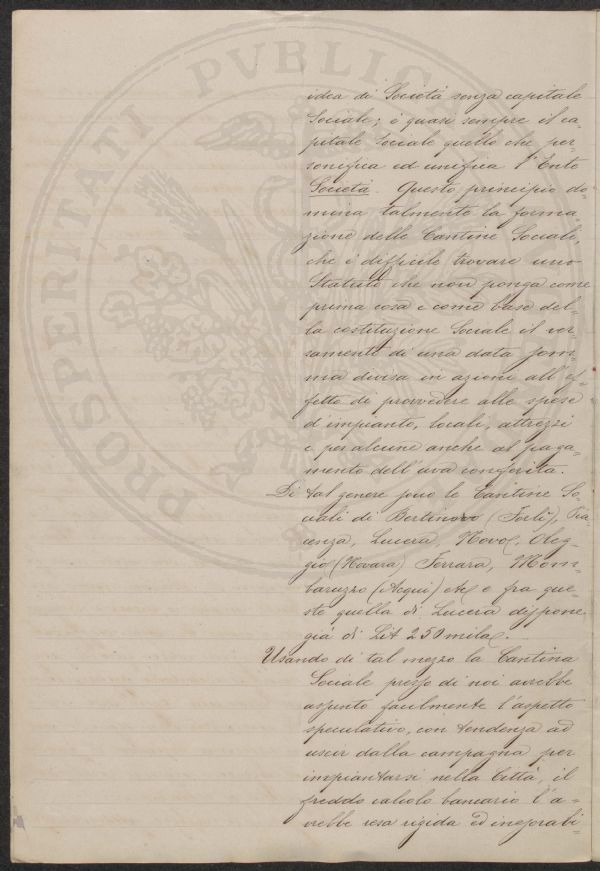 PROSPERITATI PVBLIC
idea di Società senza capitale
Sociale; è quasi sempre il ca=
pitale Sociale quello che per=
sonifica ed unifica l'Ente
Società. Questo principio do=
mina talmente la forma=
zione delle Cantine Sociali,
che è difficile trovare uno
Statuto che non ponga come
prima cosa e come base del=
la costituzione Sociale il ver=
samento di una data som=
ma divisa in azioni all'ef=
fetto di provvedere alle spese
d'impianto, locali, attrezzi
e per alcune anche al paga=
mento dell'uva conferita.
Di tal genere sono le Cantine So=
ciali di Bertinoro (Forlì), Pia=
cenza, Lucera, Oleg=
gio (Novara) Ferrara, Mom=
baruzzo (Acqui) etc e fra que=
ste quella di Lucera dispone
già di Lit 250 mila.
Usando di tal mezzo la Cantina
Sociale presso di noi avrebbe
assunto facilmente l'aspetto
speculativo, con tendenza ad
uscir dalla campagna per
impiantarsi nella Città, il
freddo calcolo bancario l'a=
vrebbe resa rigida ed inesorabi=